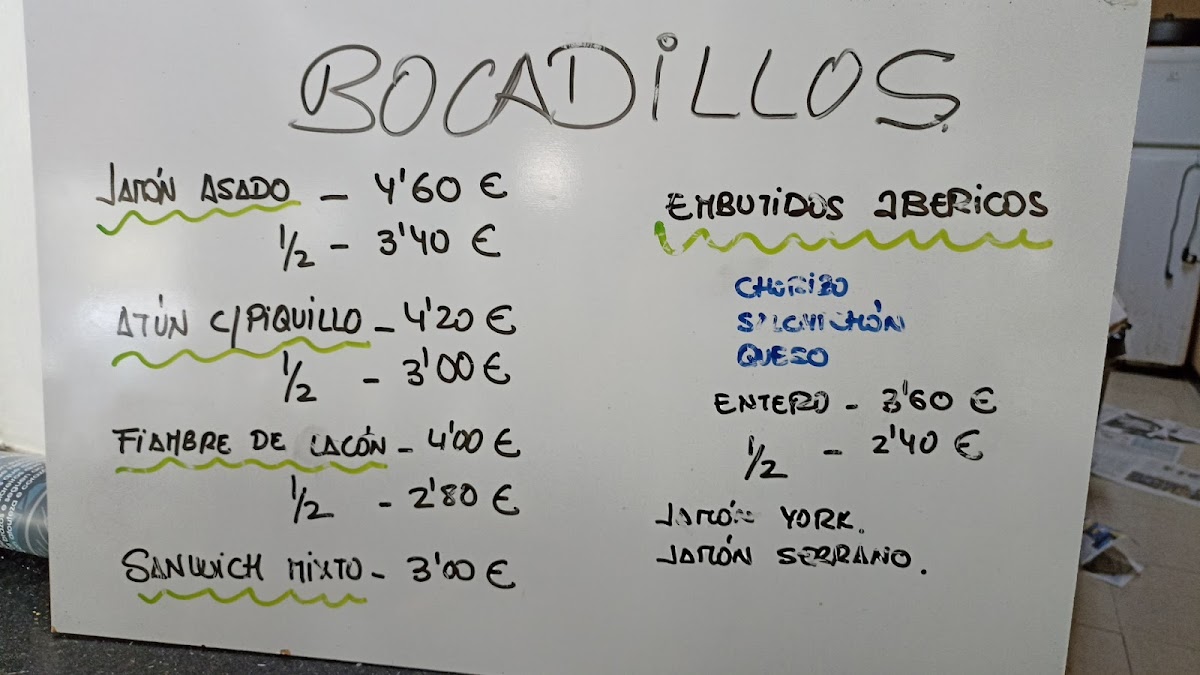 BOCADiLLOS
JAMÓN ASADO - 4'60 €
1/2 - 3'40 €
ATÚN C/PiQUiLLO - 4'20 €
1/2 - 3'00 €
FiAMBRE DE LACÓN - 4'00 €
1/2 - 2'80 €
SANWICH MiXTO - 3'00 €
EMBUTIDOS IBERiCOS
CHORIZO
SALCHICHÓN
QUESO
ENTERO - 3'60 €
1/2 - 2'40 €
JAMÓN YORK.
JAMÓN SERRANO.